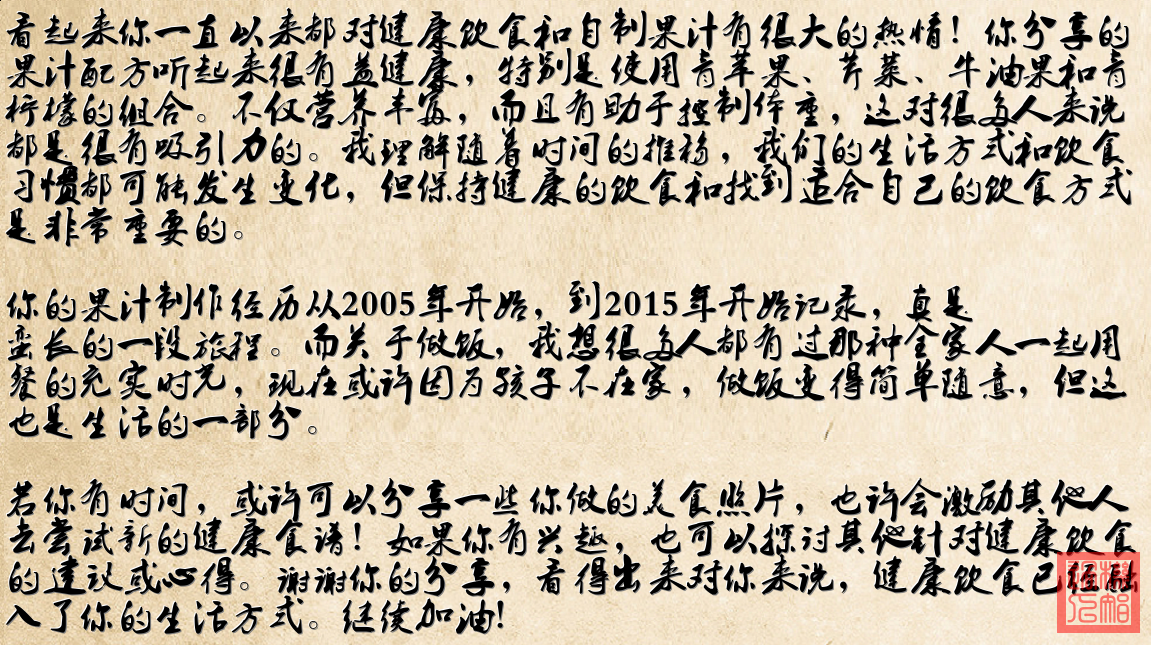 看起来你一直以来都对健康饮食和自制果汁有很大的热情！你分享的
果汁配方听起来很有益健康，特别是使用青苹果、芹菜、牛油果和青
柠檬的组合。不仅营养丰富，而且有助于控制体重，这对很多人来说
都是很有吸引力的。我理解随着时间的推移，我们的生活方式和饮食
习惯都可能发生变化，但保持健康的饮食和找到适合自己的饮食方式
是非常重要的。
你的果汁制作经历从2005年开始，到2015年开始记录，真是
蛮长的一段旅程。而关于做饭，我想很多人都有过那种全家人一起用
餐的充实时光，现在或许因为孩子不在家，做饭变得简单随意，但这
也是生活的一部分。
若你有时间，或许可以分享一些你做的美食照片，也许会激励其他人
去尝试新的健康食谱！如果你有兴趣，也可以探讨其他针对健康饮食
的建议或心得。谢谢你的分享，看得出来对你来说，健康饮食已经融
入了你的生活方式。继续加油！